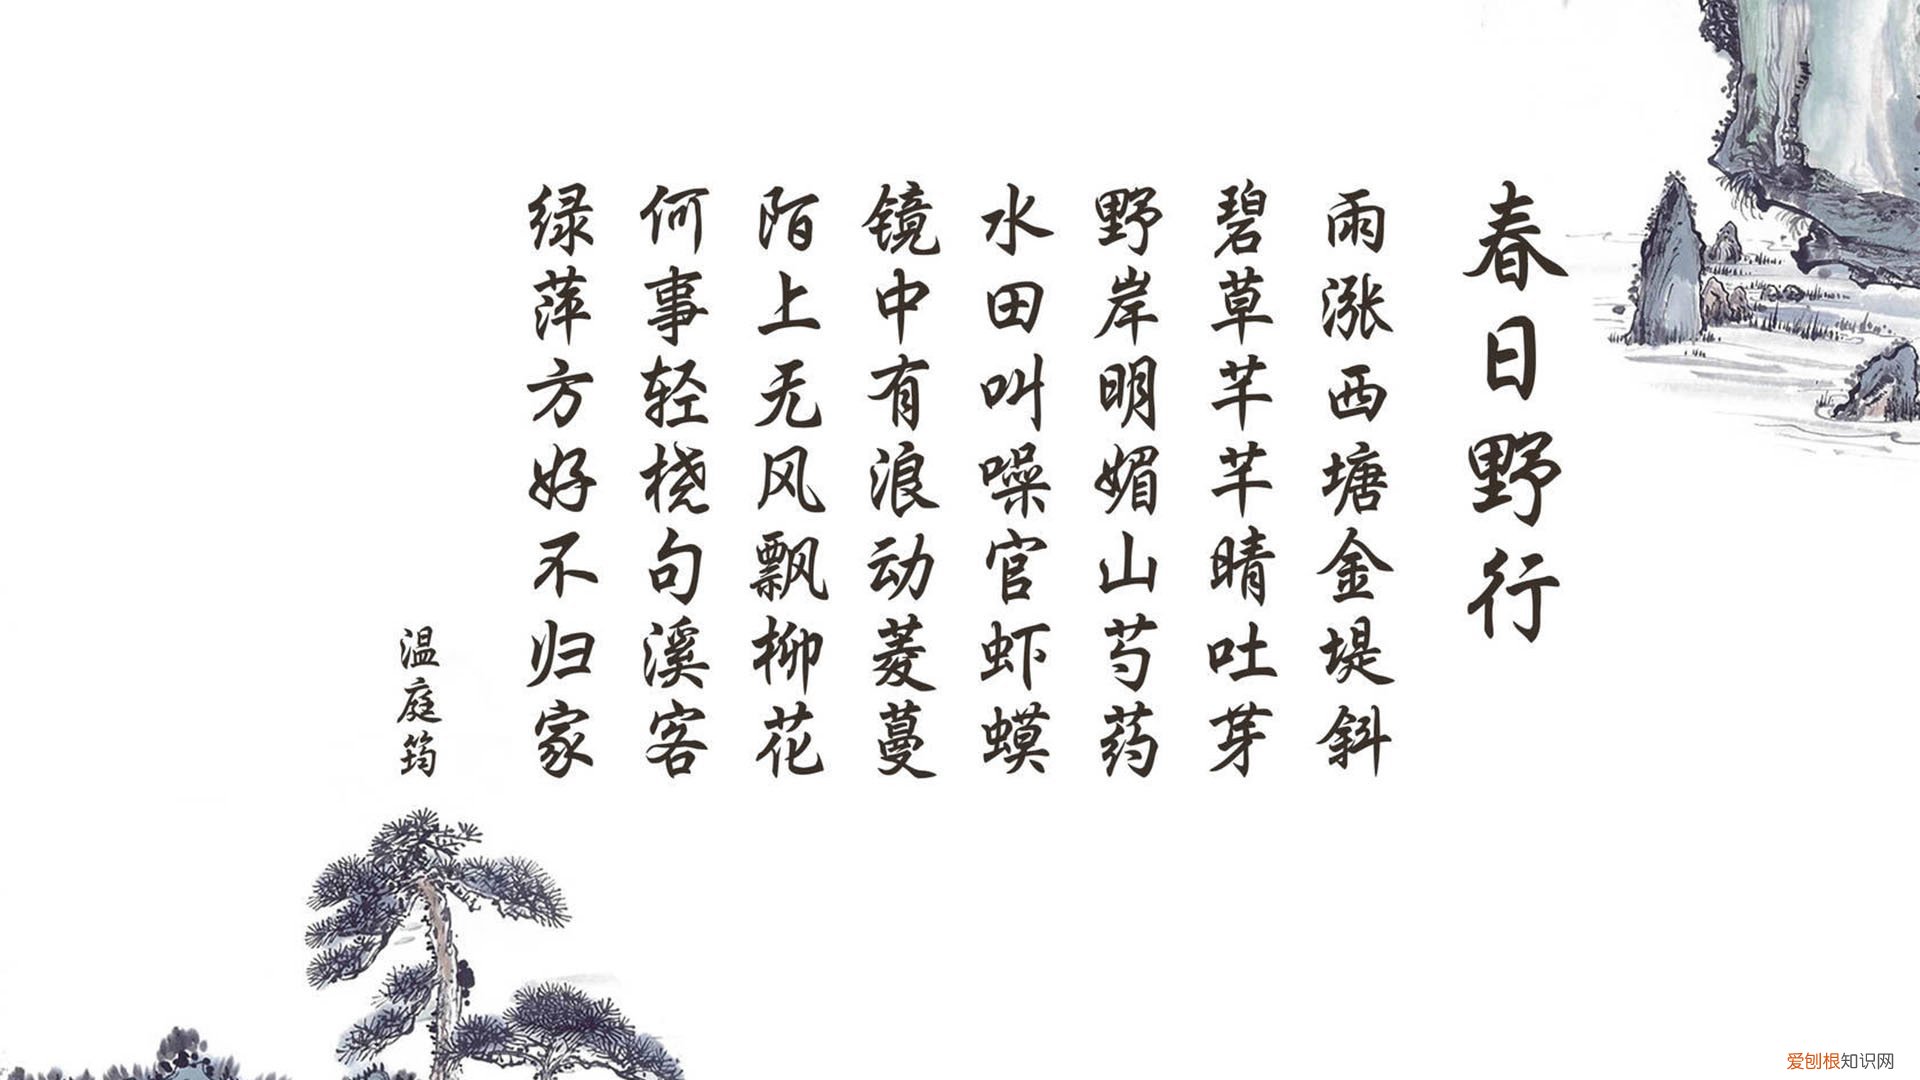 春日野行
雨涨西塘金堤斜
碧草芊芊晴吐芽
野岸明媚山芍药
水田叫噪官虾蟆
镜中有浪动菱蔓
陌上无风飘柳花
何事轻桡句溪客
绿萍方好不归家
温庭筠
爱刨根知识网